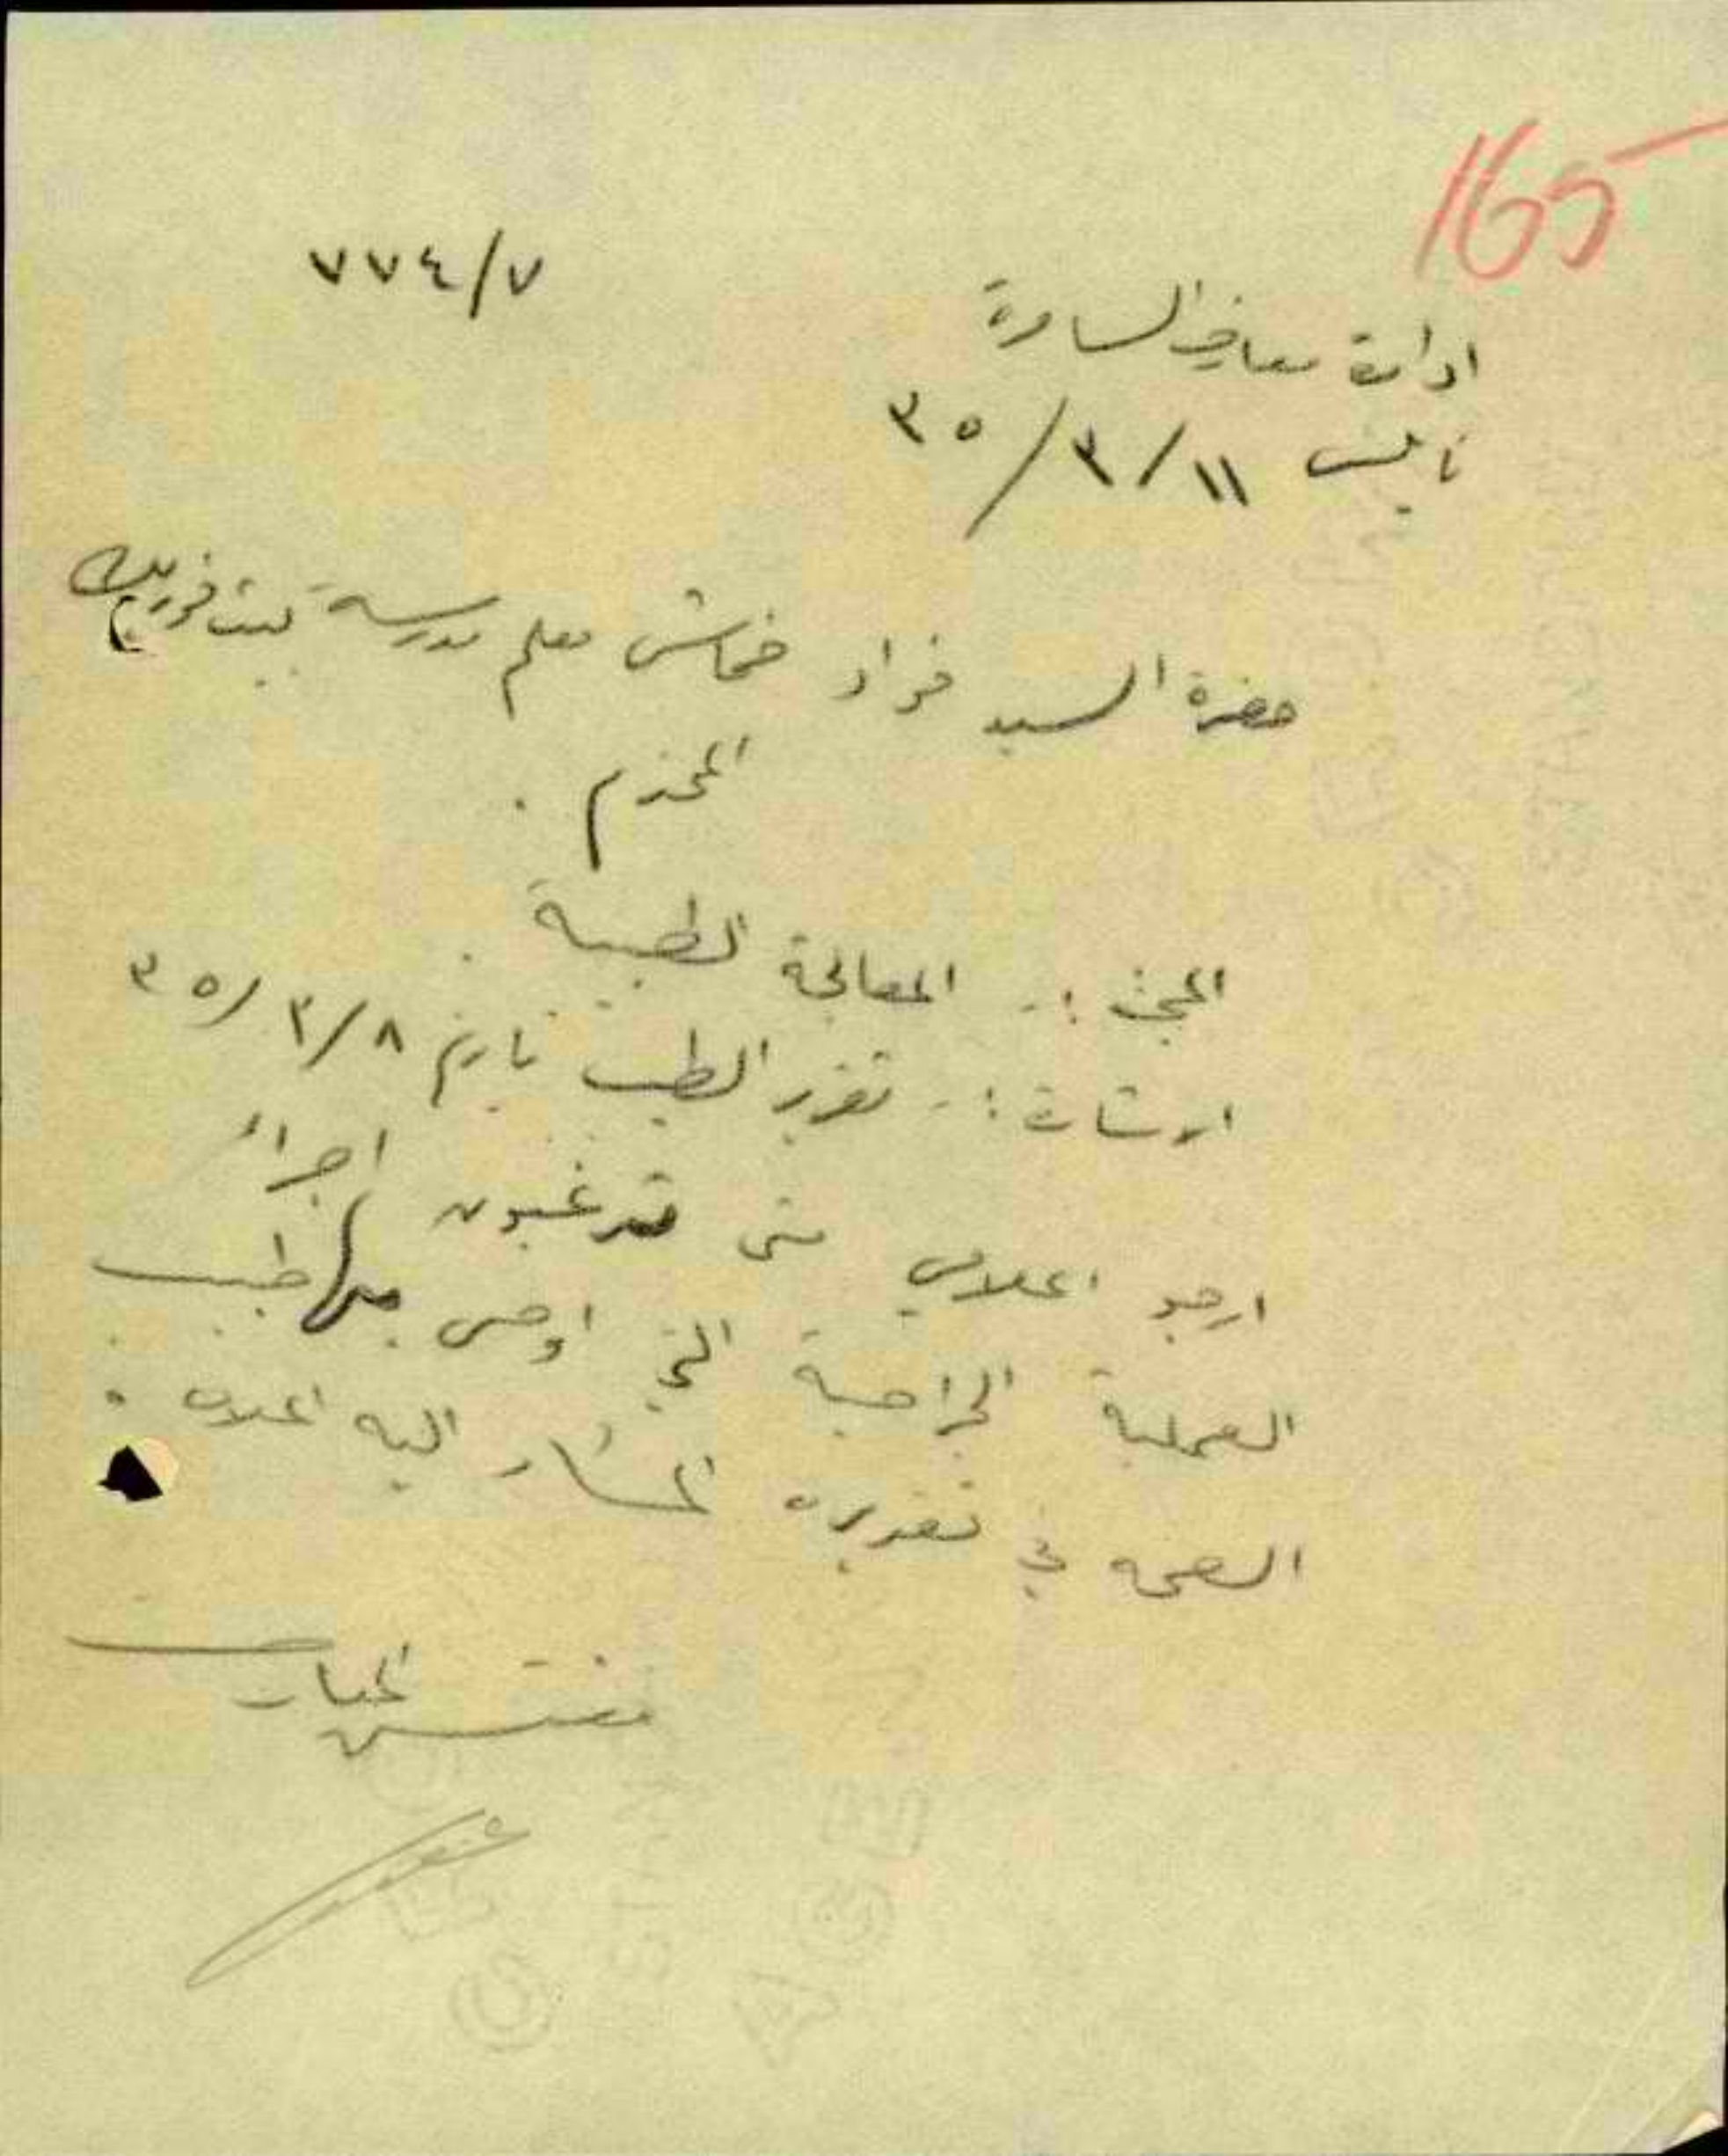 165
٧٧٤/٧
ادارة معارف السامرة
نابلس ١١/٣/٣٥
حضرة السيد فؤاد خماش معلم مدرسة بيت فوريك
المحترم .
البحث :- المعالجة الطبية .
الاشارة :- تقرير الطبيب تاريخ ٨/٣/٣٥
ارجو اعلامي متى ترغبون اجراء
العملية الجراحية التي اوصى بها طبيب
الصحة في تقريره المشار اليه اعلاه .
مفتش المعارف